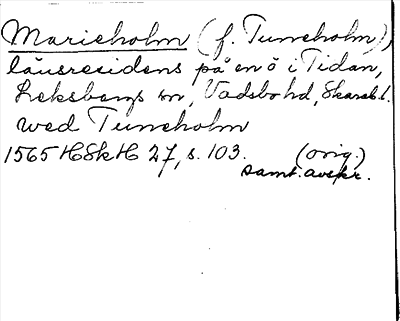 Marieholm (f. Tuneholm)
länsresidens på en ö i Tidan,
Leksbergs sn, Vadsbo hd, Skarab. l.
wed Tuneholm
1565 HSkH 27, s. 103. (orig.)
samt. avskr.